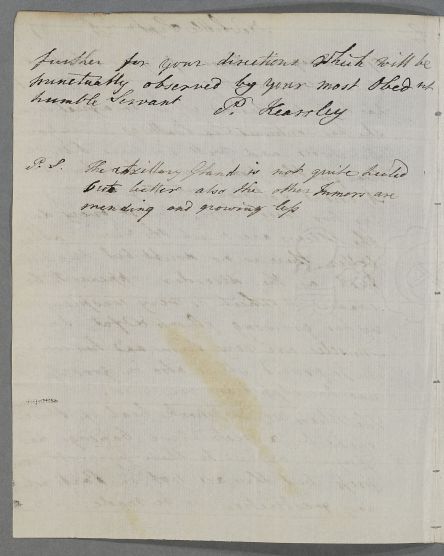 further for your directions Which will be
punctually observed by your most Obednt
humble Servant P. Kearsley
P. S. The Axillary Gland is not quite healed
but better also the other Tumors are
mending and growing less